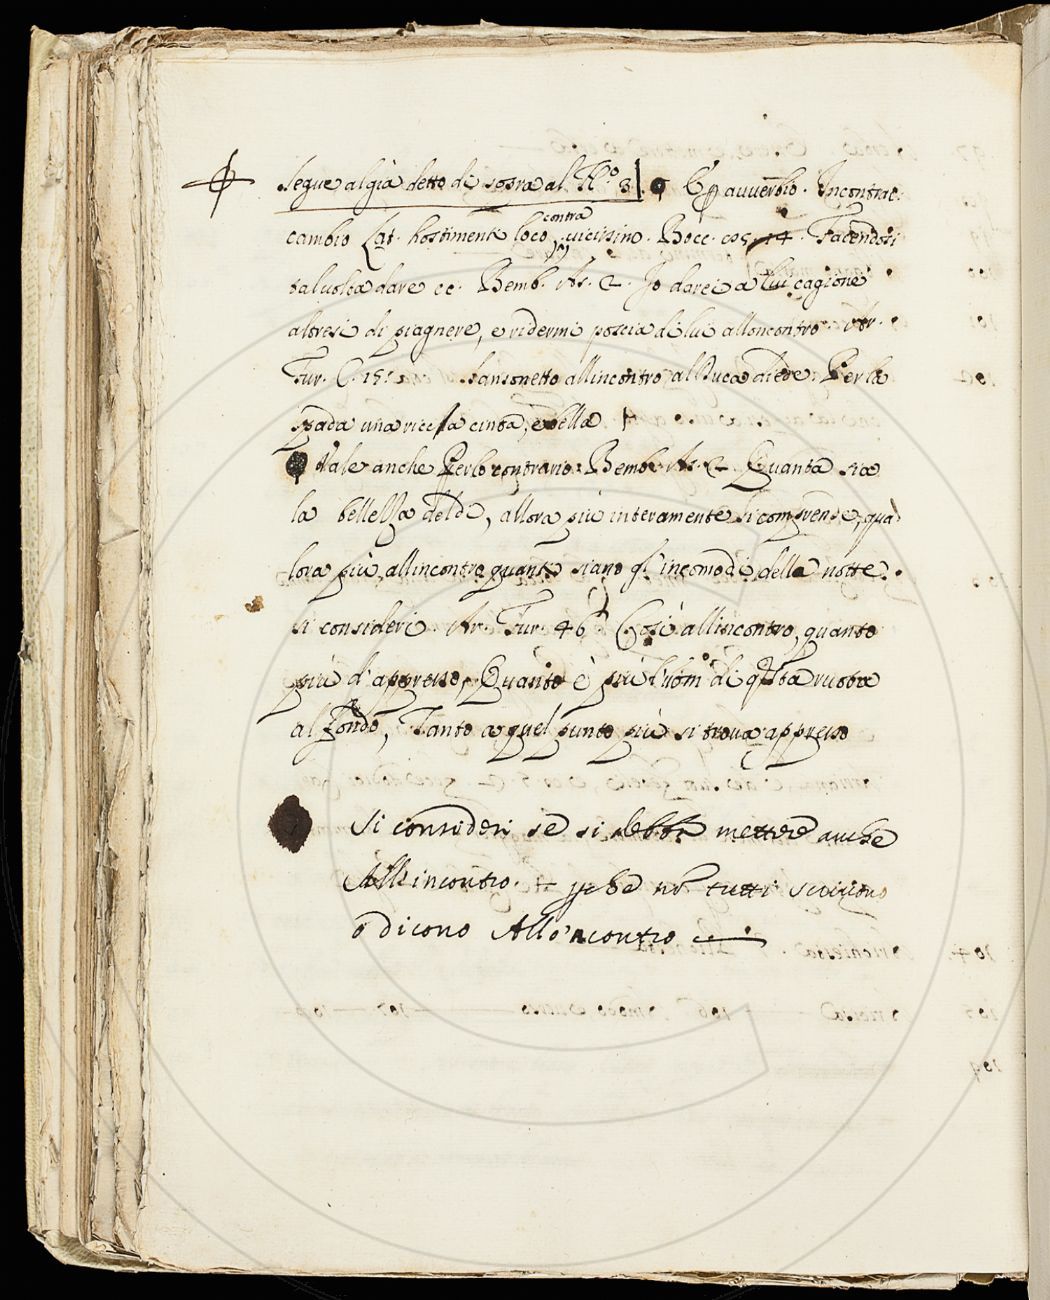 Segue al già detto di sopra al N.º 8 | È avverbio. Incontrac
cambio Lat. hostimenti loco, contra, vicissim. Bocc. cos. 14. Facendosi
talvolta dare ec. Bemb. As. 2. Io darei a lui cagione
altresì di piagnere, e ridermi poscia di lui alloncontro. Ar.
Fur. C. 15. Sansonetto allincontro al Duca diede: Per la
spada una ricca cinta, e bella
Vale anche Per lo contrario: Bemb. As. 2. Quanta sia
la bellezza del dì, allora più interamente si comprende, qua
lora più, allincontro quanti siano gl' incomodi della notte
si consideri. Ar. Fur. 46 Così allincontro, quanto
più d'appresso, Quanto è più l'uom di qsta ruota
al fondo, Tanto a quel punto più si trova appresso
Si consideri se si debba mettere anche
All'incontro. pche nō tutti scrivono
o dicono Allo'ncontro